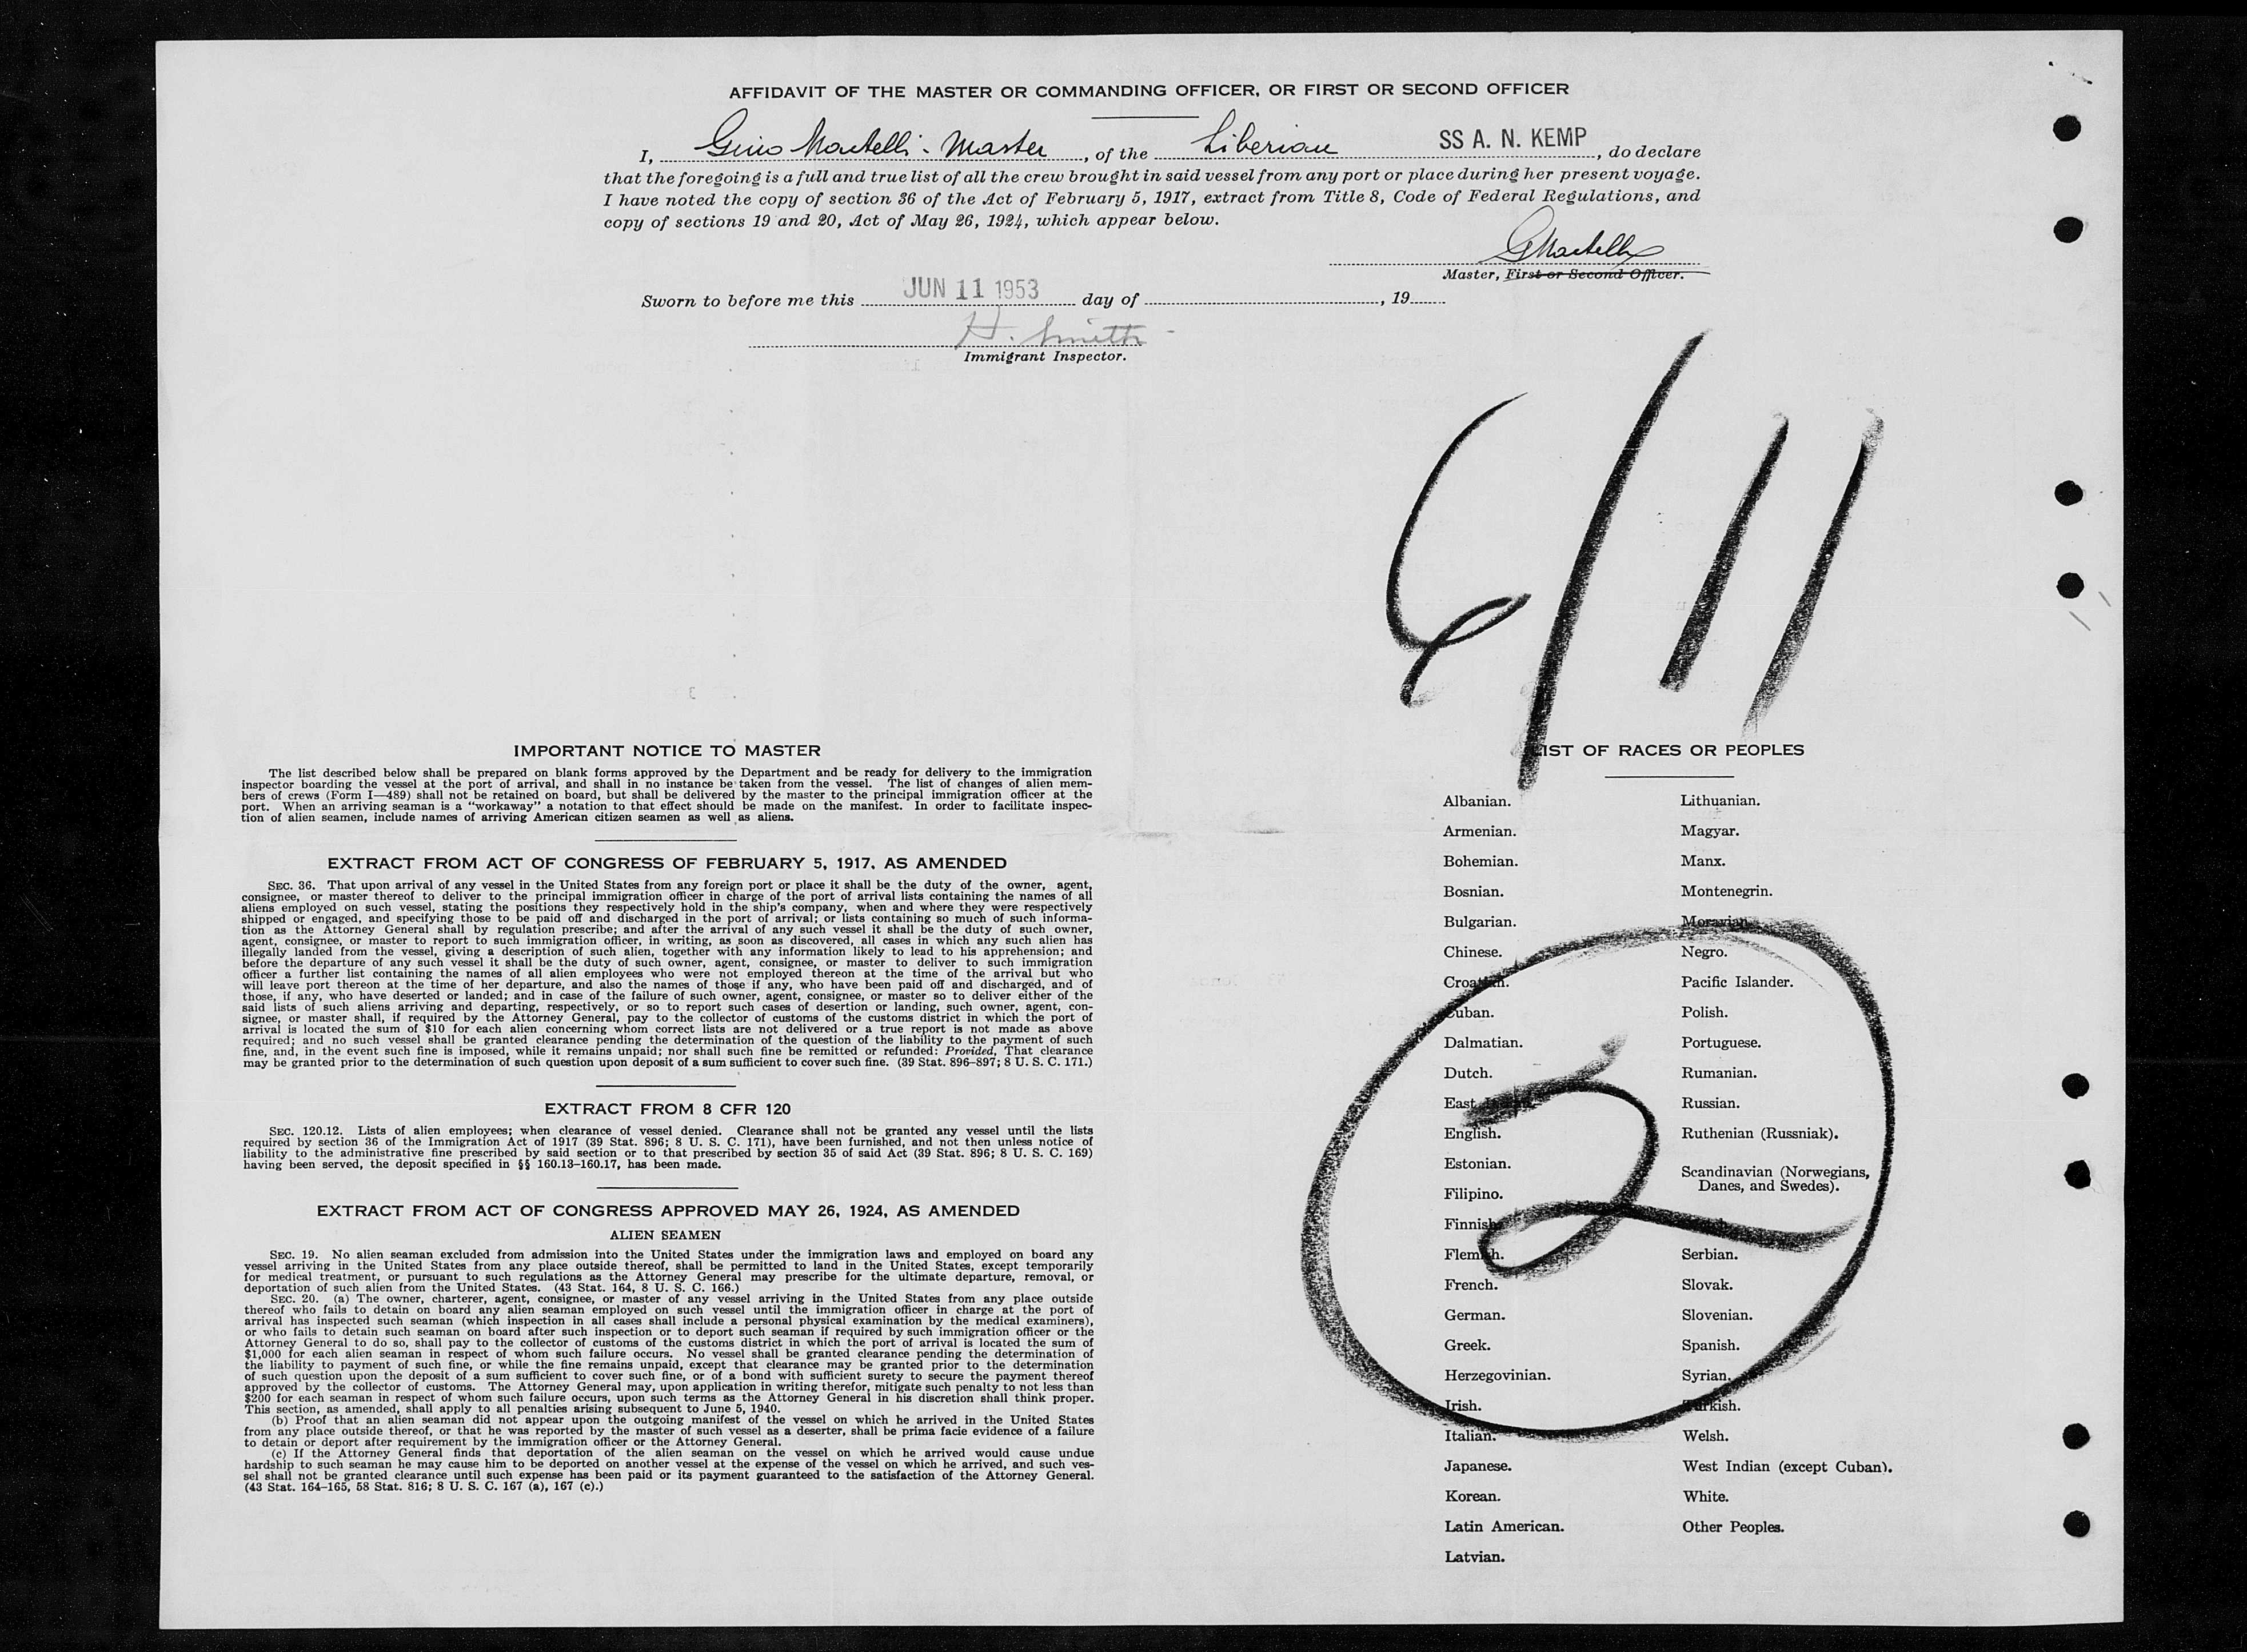 AFFIDAVIT OF THE MASTER OR COMMANDING OFFICER, OR FIRST OR SECOND OFFICER
I, Gino Martelli - Master, of the Liberian SS A. N. KEMP, do declare
that the foregoing is a full and true list of all the crew brought in said vessel from any port or place during her present voyage.
I have noted the copy of section 36 of the Act of February 5, 1917, extract from Title 8, Code of Federal Regulations, and
copy of sections 19 and 20, Act of May 26, 1924, which appear below.
GMartelli
Master, First or Second Officer.
Sworn to before me this JUN 11 1953 day of , 19
H. Smith
Immigrant Inspector.
6/11
IMPORTANT NOTICE TO MASTER
The list described below shall be prepared on blank forms approved by the Department and be ready for delivery to the immigration
inspector boarding the vessel at the port of arrival, and shall in no instance be taken from the vessel. The list of changes of alien mem-
bers of crews (Form I—489) shall not be retained on board, but shall be delivered by the master to the principal immigration officer at the
port. When an arriving seaman is a “workaway” a notation to that effect should be made on the manifest. In order to facilitate inspec-
tion of alien seamen, include names of arriving American citizen seamen as well as aliens.
EXTRACT FROM ACT OF CONGRESS OF FEBRUARY 5, 1917, AS AMENDED
SEC. 36. That upon arrival of any vessel in the United States from any foreign port or place it shall be the duty of the owner, agent,
consignee, or master thereof to deliver to the principal immigration officer in charge of the port of arrival lists containing the names of all
aliens employed on such vessel, stating the positions they respectively hold in the ship's company, when and where they were respectively
shipped or engaged, and specifying those to be paid off and discharged in the port of arrival; or lists containing so much of such informa-
tion as the Attorney General shall by regulation prescribe; and after the arrival of any such vessel it shall be the duty of such owner,
agent, consignee, or master to report to such immigration officer, in writing, as soon as discovered, all cases in which any such alien has
illegally landed from the vessel, giving a description of such alien, together with any information likely to lead to his apprehension; and
before the departure of any such vessel it shall be the duty of such owner, agent, consignee, or master to deliver to such immigration
officer a further list containing the names of all alien employees who were not employed thereon at the time of the arrival but who
will leave port thereon at the time of her departure, and also the names of those if any, who have been paid off and discharged, and of
those, if any, who have deserted or landed; and in case of the failure of such owner, agent, consignee, or master so to deliver either of the
said lists of such aliens arriving and departing, respectively, or so to report such cases of desertion or landing, such owner, agent, con-
signee, or master shall, if required by the Attorney General, pay to the collector of customs of the customs district in which the port of
arrival is located the sum of $10 for each alien concerning whom correct lists are not delivered or a true report is not made as above
required; and no such vessel shall be granted clearance pending the determination of the question of the liability to the payment of such
fine, and, in the event such fine is imposed, while it remains unpaid; nor shall such fine be remitted or refunded: Provided, That clearance
may be granted prior to the determination of such question upon deposit of a sum sufficient to cover such fine. (39 Stat. 896–897; 8 U. S. C. 171.)
EXTRACT FROM 8 CFR 120
SEC. 120.12. Lists of alien employees; when clearance of vessel denied. Clearance shall not be granted any vessel until the lists
required by section 36 of the Immigration Act of 1917 (39 Stat. 896; 8 U. S. C. 171), have been furnished, and not then unless notice of
liability to the administrative fine prescribed by said section or to that prescribed by section 35 of said Act (39 Stat. 896; 8 U. S. C. 169)
having been served, the deposit specified in §§ 160.13–160.17, has been made.
EXTRACT FROM ACT OF CONGRESS APPROVED MAY 26, 1924, AS AMENDED
ALIEN SEAMEN
SEC. 19. No alien seaman excluded from admission into the United States under the immigration laws and employed on board any
vessel arriving in the United States from any place outside thereof, shall be permitted to land in the United States, except temporarily
for medical treatment, or pursuant to such regulations as the Attorney General may prescribe for the ultimate departure, removal, or
deportation of such alien from the United States. (43 Stat. 164, 8 U. S. C. 166.)
SEC. 20. (a) The owner, charterer, agent, consignee, or master of any vessel arriving in the United States from any place outside
thereof who fails to detain on board any alien seaman employed on such vessel until the immigration officer in charge at the port of
arrival has inspected such seaman (which inspection in all cases shall include a personal physical examination by the medical examiners),
or who fails to detain such seaman on board after such inspection or to deport such seaman if required by such immigration officer or the
Attorney General to do so, shall pay to the collector of customs of the customs district in which the port of arrival is located the sum of
$1,000 for each alien seaman in respect of whom such failure occurs. No vessel shall be granted clearance pending the determination of
the liability to payment of such fine, or while the fine remains unpaid, except that clearance may be granted prior to the determination
of such question upon the deposit of a sum sufficient to cover such fine, or of a bond with sufficient surety to secure the payment thereof
approved by the collector of customs. The Attorney General may, upon application in writing therefor, mitigate such penalty to not less than
$200 for each seaman in respect of whom such failure occurs, upon such terms as the Attorney General in his discretion shall think proper.
This section, as amended, shall apply to all penalties arising subsequent to June 5, 1940.
(b) Proof that an alien seaman did not appear upon the outgoing manifest of the vessel on which he arrived in the United States
from any place outside thereof, or that he was reported by the master of such vessel as a deserter, shall be prima facie evidence of a failure
to detain or deport after requirement by the immigration officer or the Attorney General.
(c) If the Attorney General finds that deportation of the alien seaman on the vessel on which he arrived would cause undue
hardship to such seaman he may cause him to be deported on another vessel at the expense of the vessel on which he arrived, and such ves-
sel shall not be granted clearance until such expense has been paid or its payment guaranteed to the satisfaction of the Attorney General.
(43 Stat. 164–165, 58 Stat. 816; 8 U. S. C. 167 (a), 167 (c).)
LIST OF RACES OR PEOPLES
Albanian.
Armenian.
Bohemian.
Bosnian.
Bulgarian.
Chinese.
Croatian.
Cuban.
Dalmatian.
Dutch.
East
English.
Estonian.
Filipino.
Finnish.
Flemish.
French.
German.
Greek.
Herzegovinian.
Irish.
Italian.
Japanese.
Korean.
Latin American.
Latvian.
Lithuanian.
Magyar.
Manx.
Montenegrin.
Moravian.
Negro.
Pacific Islander.
Polish.
Portuguese.
Rumanian.
Russian.
Ruthenian (Russniak).
Scandinavian (Norwegians,
Danes, and Swedes).
Serbian.
Slovak.
Slovenian.
Spanish.
Syrian.
Turkish.
Welsh.
West Indian (except Cuban).
White.
Other Peoples.
2